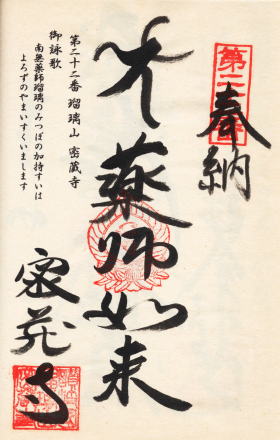 奉納
第二
薬師如来
第二十二番 瑠璃山 密蔵寺
御詠歌
南無薬師瑠璃のみつぼの加持すいは
よろずのやまいすくいまします
密蔵寺